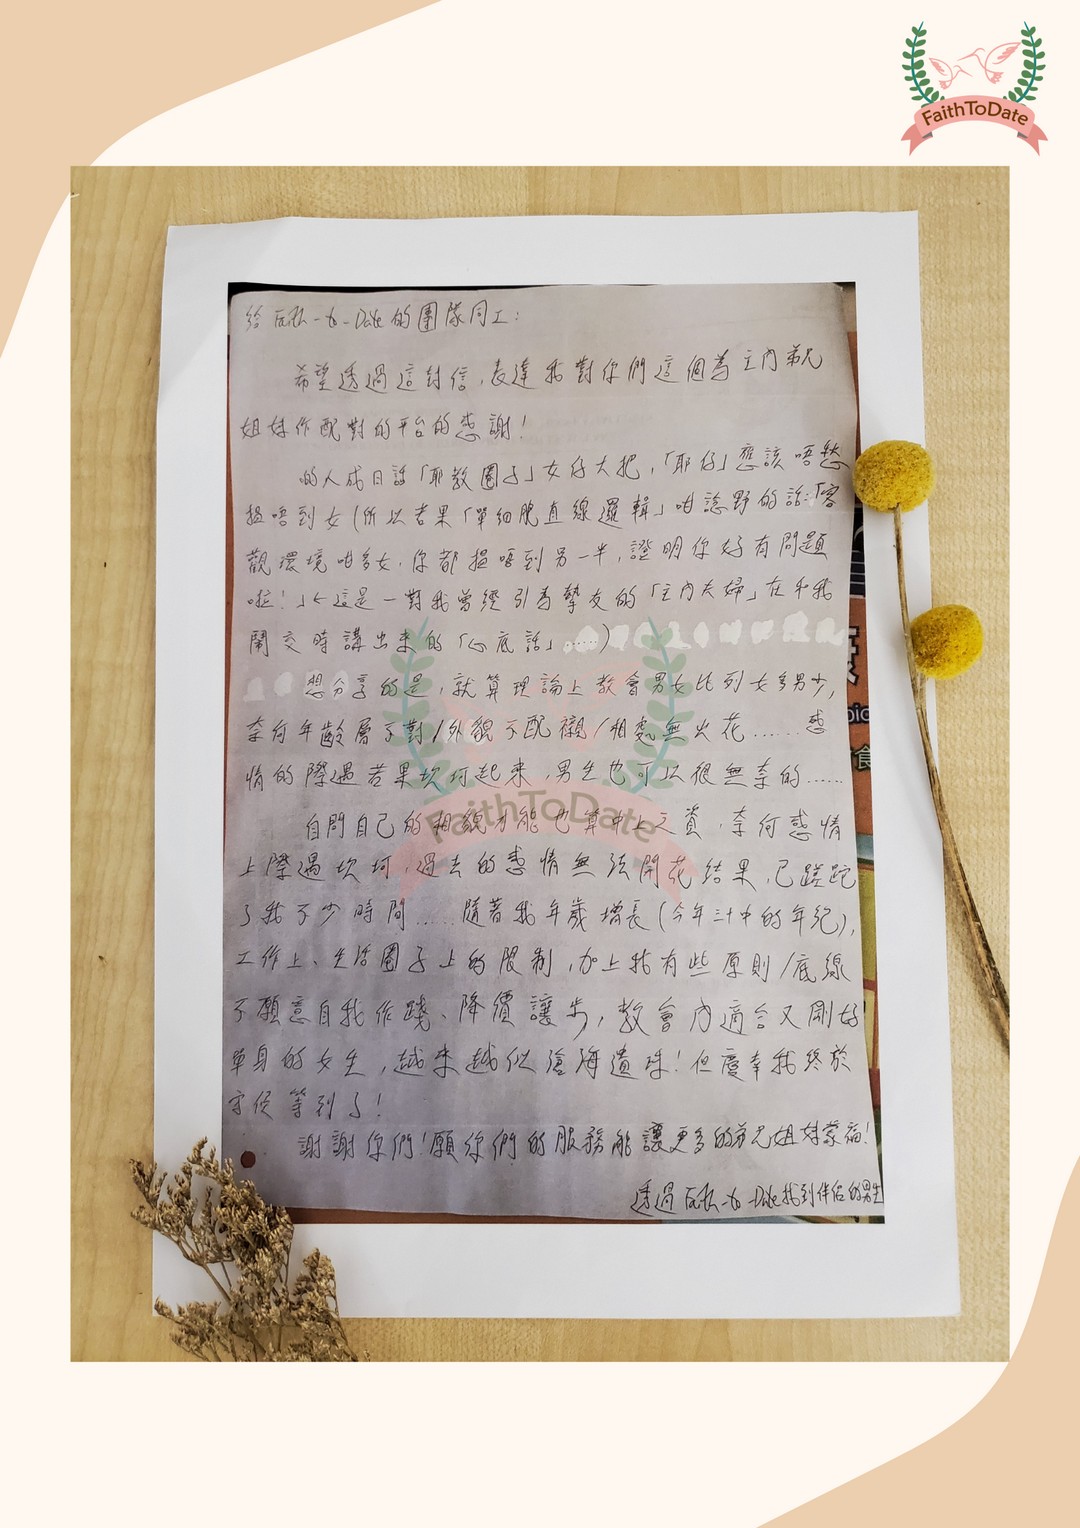 FaithToDate
給 Faith-to-Date的團隊同工：
希望透過這封信，表達我對你們這個為主內弟兄
姐妹作配對的平台的感謝！
的人成日話「耶教圈子」女仔大把，「耶仔」應該唔愁
搵唔到女（所以若果「單細胞直線邏輯」咁諗野的話：「客
觀環境咁多女，你都搵唔到另一半，證明你好有問題
啦！」←這是一對我曾經引為摯友的「主內夫婦」在和我
鬧交時講出來的「心底話」……）
想分享的是，就算理論上教會男女比列女多男少，
奈何年齡層不對/外貌不配襯/相處無火花……感
情的際遇若果坎坷起來，男生也可以很無奈的……
FaithToDate
自問自己的相貌才能也算中上之資，奈何感情
上際遇坎坷，過去的感情無法開花結果，已蹉跎
了我不少時間……隨著我年歲增長（今年三十中的年紀），
工作上、生活圈子上的限制，加上我有些原則/底線
不願意自我作踐、降價讓步，教會內適合又剛好
單身的女生，越來越似滄海遺珠！但慶幸我終於
守候等到了！
謝謝你們！願你們的服務能讓更多的弟兄姐妹蒙福！
透過 Faith-to-Date找到伴侶的男生